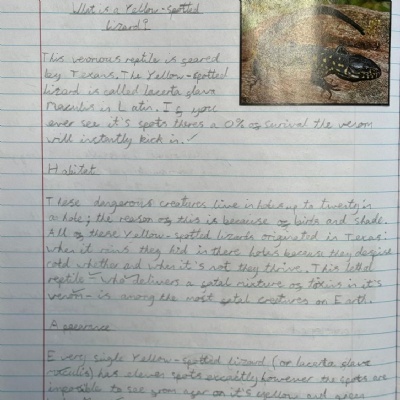 What is a Yellow-spotted
Lizard?
This venomous reptile is geared
by Texans. The Yellow-spotted
lizard is called lacerta glava
Maculis in Latin. If you
ever see it's spots theres a 0% of surival the venom
will instantly kick in.
Habitet
These dangorous creatures live in holes up to twenty in
a hole; the reason of this is because of birds and shade.
All of these Yellow-spotted lizards originated in Texas:
when it rains they hid in there holes because they
cold whether and when it's not they thrive. This lethal
reptile – who delivers a fatal mixture of toxins in it's
venom – is among the most fatal creatures on Earth.
Every single Yellow-spotted lizard (or lacerta glava
has eleven spots however the spots are
impossible to see from agar on it's yellow and